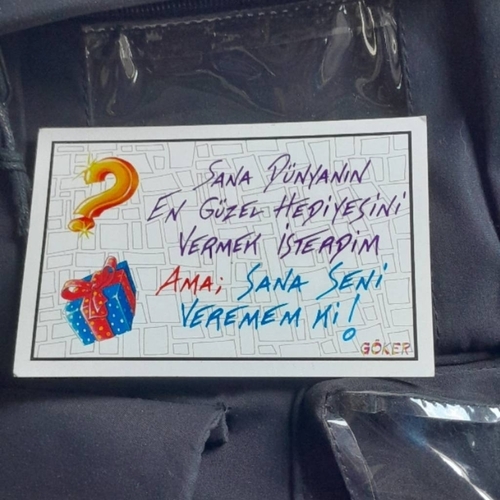 SANA DÜNYANIN
EN GÜZEL HEDİYESİNİ
VERMEK İSTERDİM
AMA; SANA SENİ
VEREMEM Kİ!
GÖKER